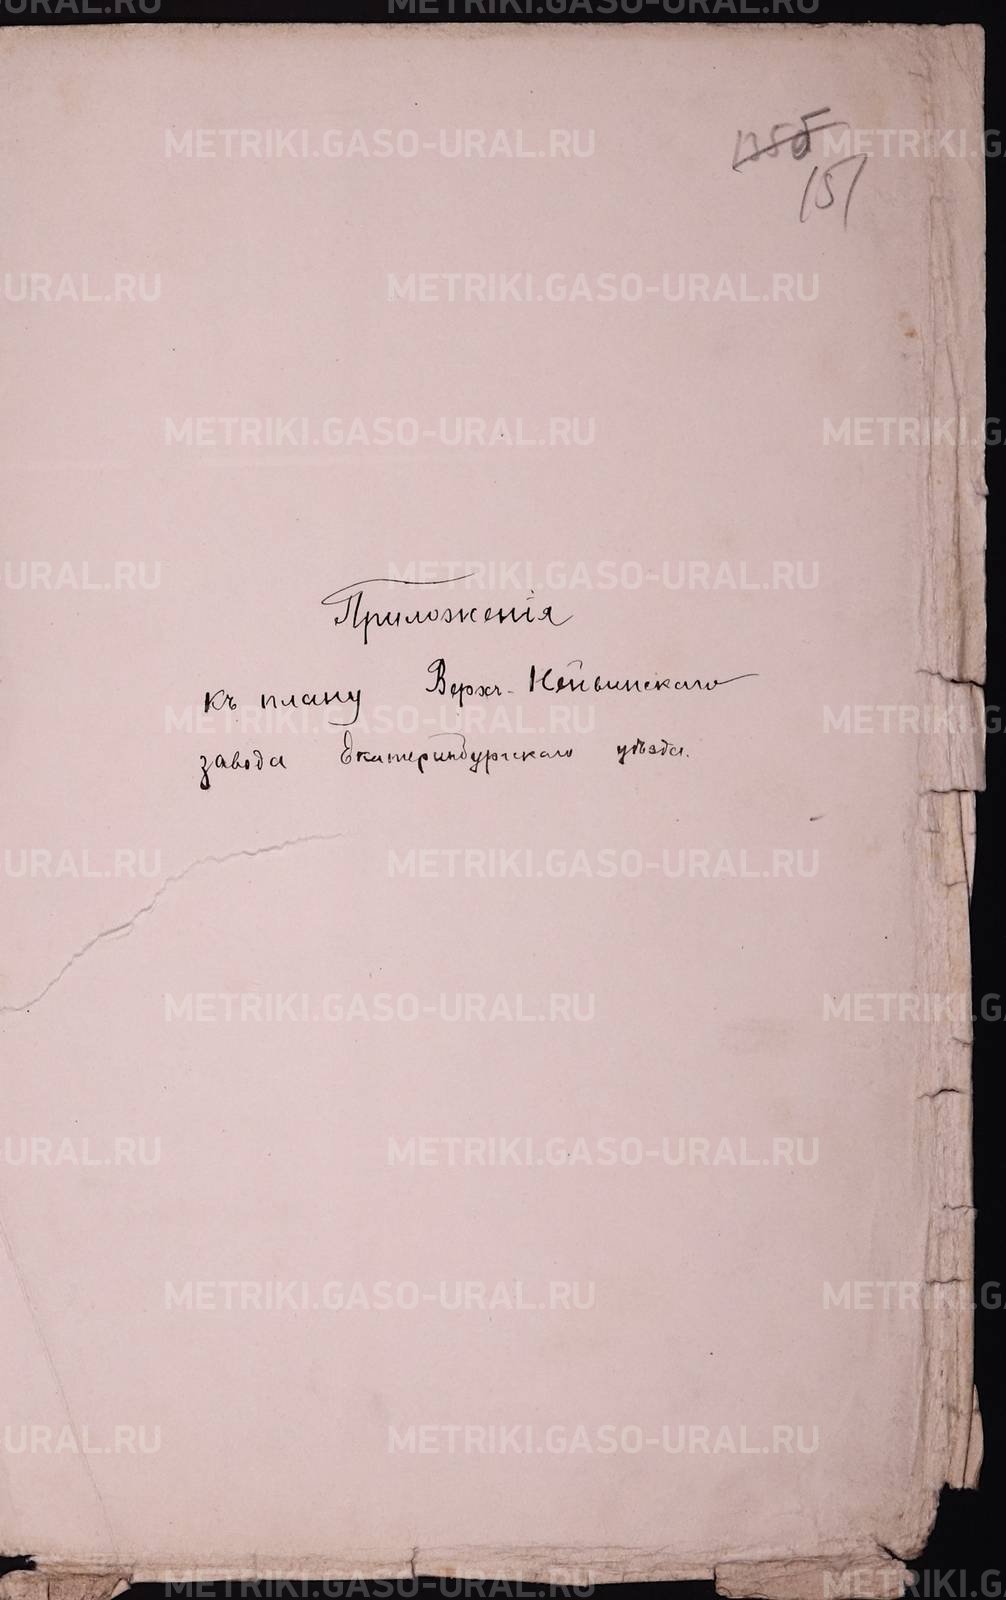 151
Приложенія
къ плану Верхъ-Нейвинскаго
завода Екатеринбургскаго уѣзда.
METRIKI.GASO-URAL.RU